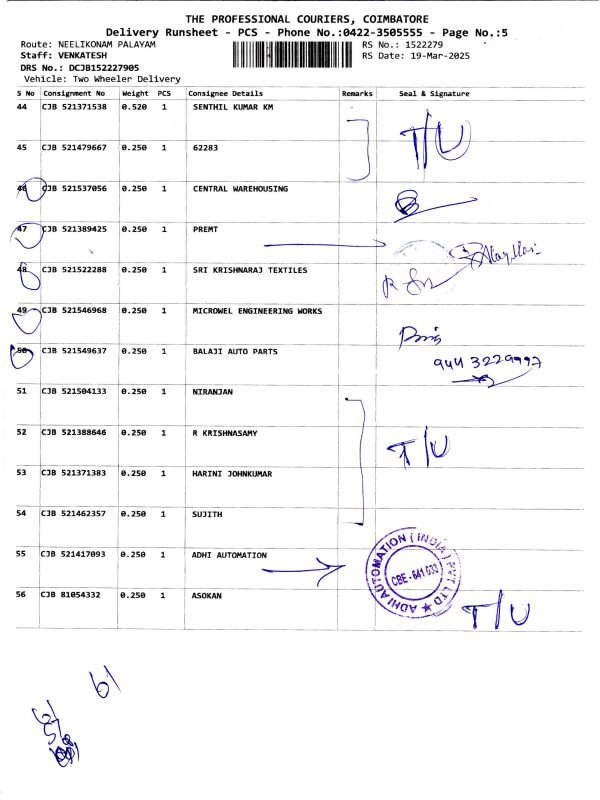 THE PROFESSIONAL COURIERS, COIMBATORE
Delivery Runsheet - PCS - Phone No.:0422-3505555 - Page No.:5
Route: NEELIKONAM PALAYAM RS No.: 1522279
Staff: VENKATESH RS Date: 19-Mar-2025
DRS No.: DCJB152227905
Vehicle: Two Wheeler Delivery
S No Consignment No Weight PCS Consignee Details Remarks Seal & Signature
44 CJB 521371538 0.520 1 SENTHIL KUMAR KM
T/U
45 CJB 521479667 0.250 1 62283
46 CJB 521537056 0.250 1 CENTRAL WAREHOUSING
47 CJB 521389425 0.250 1 PREMT
48 CJB 521522288 0.250 1 SRI KRISHNARAJ TEXTILES
49 CJB 521546968 0.250 1 MICROWEL ENGINEERING WORKS
50 CJB 521549637 0.250 1 BALAJI AUTO PARTS
9443229997
51 CJB 521504133 0.250 1 NIRANJAN
52 CJB 521388646 0.250 1 R KRISHNASAMY
T/U
53 CJB 521371383 0.250 1 HARINI JOHNKUMAR
54 CJB 521462357 0.250 1 SUJITH
55 CJB 521417093 0.250 1 ADHI AUTOMATION
ADHI AUTOMATION (INDIA) PVT LTD
56 CJB 81054332 0.250 1 ASOKAN
T/U